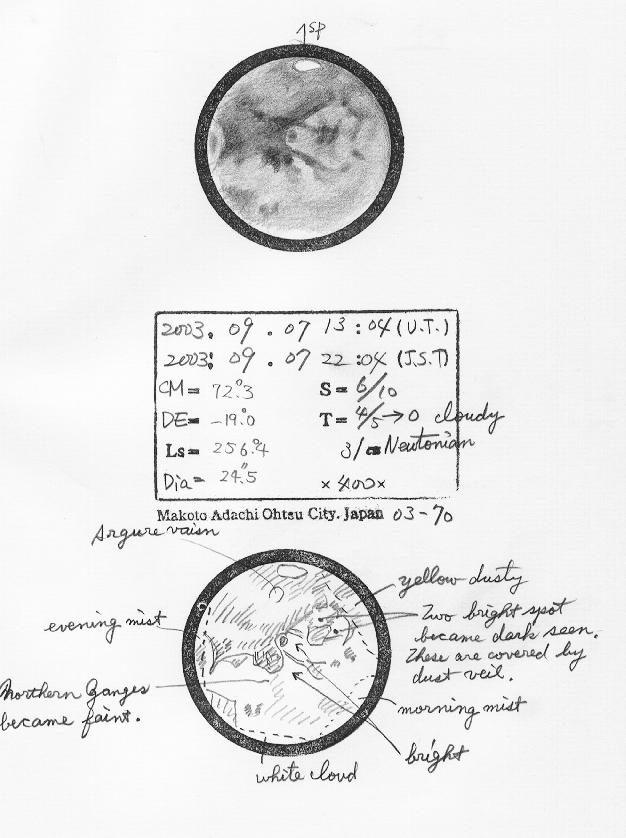 ↑SP
2003. 09. 07 13:04 (U.T.)
2003. 09. 07 22:04 (J.S.T)
CM= 72.°3 S= 6/10
DE= -19.°0 T= 4/5→0 cloudy
Ls= 256.°4 31 cm Newtonian
Dia= 24."5 ×400×
Makoto Adachi Ohtsu City. Japan 03-70
Argure vaisn
yellow dusty
evening mist
Two bright spot
became dark seen.
These are covered by
dust veil.
Northern Ganges
became faint.
morning mist
bright
white cloud